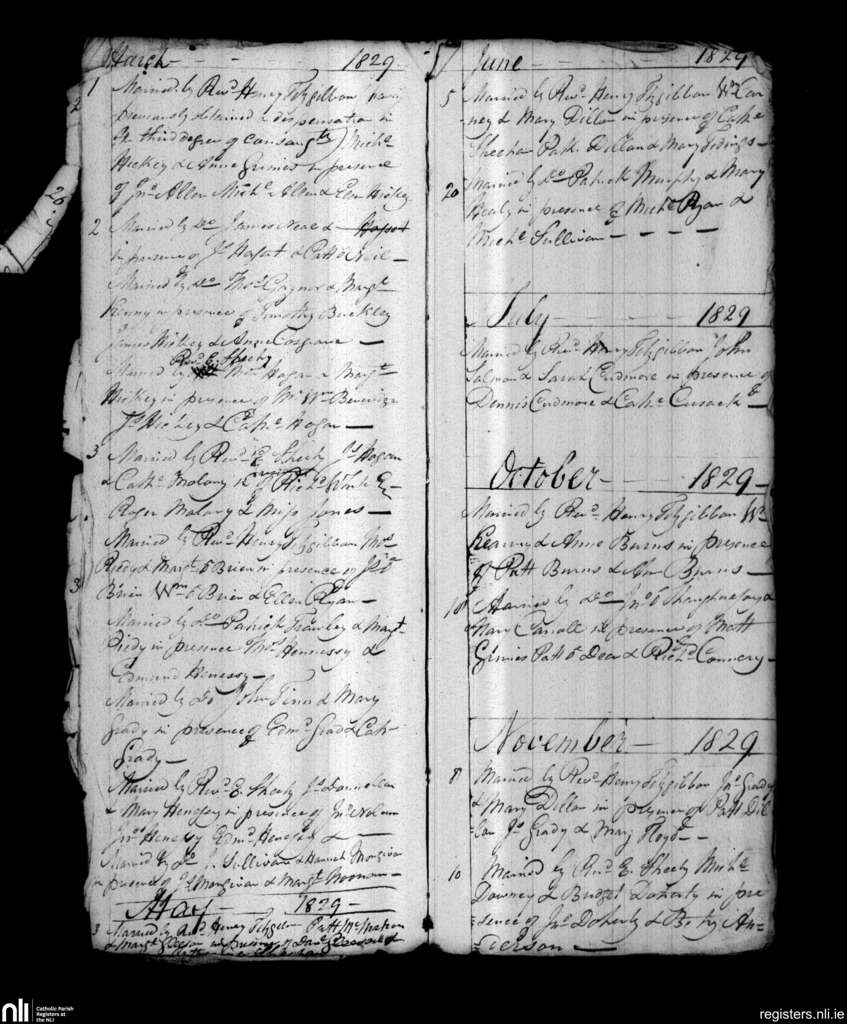 March 1829
1 Married by Revd. Henry Fitzgibbon having
2 previously obtained a dispensation in
the third degree of Consangty) Michl
Hickey & Anne Grimes in presence
of Jno. Allen Michl. Allen & Edm Hickey
2 Married by Do James Neal & Hassot
in presence of Js Hassot & Catt o Neil
Married by Do Thos. Gaynor & Margt
Kenny in presence of Timothy Buckley
James Hickey & Anne Cosgrave
Revd. E. Sheehy
Married by Wm Hogan & Margt
Hickey in presence of Mr Wm
Js Hickey & Cathe Hogan
3 Married by Revd. E Sheehy Js Hogan
& Cathe Molony in presence of Richd
Roger Molony & Miss Jones
Married by Revd. Henry Fitzgibbon Thos
Reidy & Margt o Brien in presence of Js o
3 Brien Wm o Brien & Ellen Ryan
Married by Do Patrick Frawley & Margt
Reidy in presence Thos Hennessy &
Edmund Hennessy
Married by Do John Finn & Mary
Grady in presence of Edmd Grady & Cath
Grady
Married by Revd. E. Sheehy Js Donnellan
& Mary Henesey in presence of
Jno Henesy Edmd. Henesy &
Married by Do J Sullivan & Hannah
in presence of & Margt Noonan
May 1829
3 Married by Revd. Henry Fitzgibbon Patt McMahon
& Margt Gleeson in presence of Danl Gleeson &
June 1829
5 Married by Revd. Henry Fitzgibbon Wm Car
ney & Mary Dillon in presence of Cathe
Sheehan Patk. Dillon & Mary
20 Married by Do Patrick Murphy & Mary
Healy in presence of Michl Ryan &
Michl Sullivan
July 1829
Married by Revd. Henry Fitzgibbon John
Salmon & Sarah Cudmore in presence of
Dennis Cudmore & Cathe Cusack
October 1829
Married by Revd. Henry Fitzgibbon Wm
Kearny & Anne Burns in presence
of Patt Burns & Burns
18 Married by Do Jno o Shaughnessy &
Mary Carroll in presence of Matt
Grimes Patt o Dea & Richd Connery
November 1829
8 Married by Revd. Henry Fitzgibbon Jno Grady
& Mary Dillon in presence of Patt Dil
lon Js Grady & Mary Floyd
10 Married by Revd. E. Sheehy Michl
Downey & Bridget Doherty in pre
sence of Jno Doherty & Betsy An
derson
nli Catholic Parish
Registers at
the NLI
registers.nli.ie